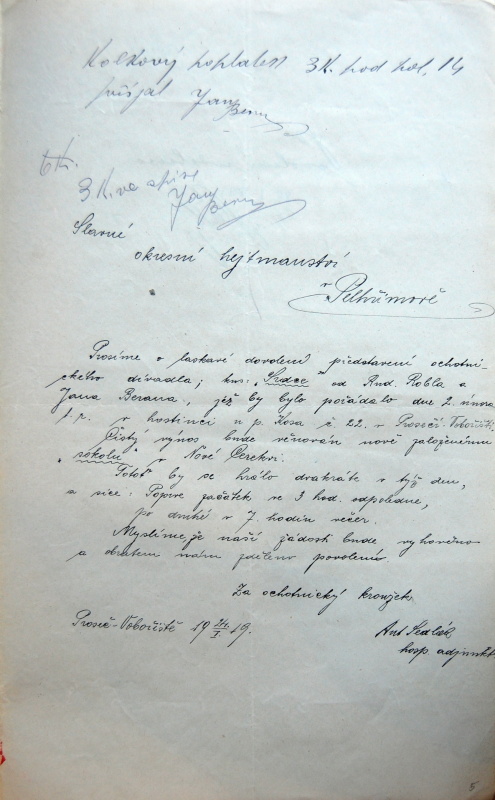 Kolkový poplatek 3K. pod pol. 14
přijal Jan Beran
6K.
3K. ve spise
Jan Beran
Slavné
okresní hejtmanství
v Pelhřimově
Prosíme o laskavé dovolení představení ochotni-
ckého divadla; kus: „Srdce" od Rud. Robla a
Jana Berana, jež by bylo pořádáno dne 2. února
t. r. v hostinci u p. Kosa č. 22. v Proseči-Vobořišti.
Čistý výnos bude věnován nově založenému
„sokolu" v Nové Cerekvi.
Totož by se hrálo dvakráte v týž den,
a sice: Poprve začátek ve 3 hod. odpoledne,
po druhé v 7. hodin večer.
Myslíme, že naší žádosti bude vyhověno
a obratem nám zděleno povolení.
Za ochotnický kroužek
Proseč-Vobořiště 19 24./I. 19.
Ant. Sedlák
hosp. adjunkt
5